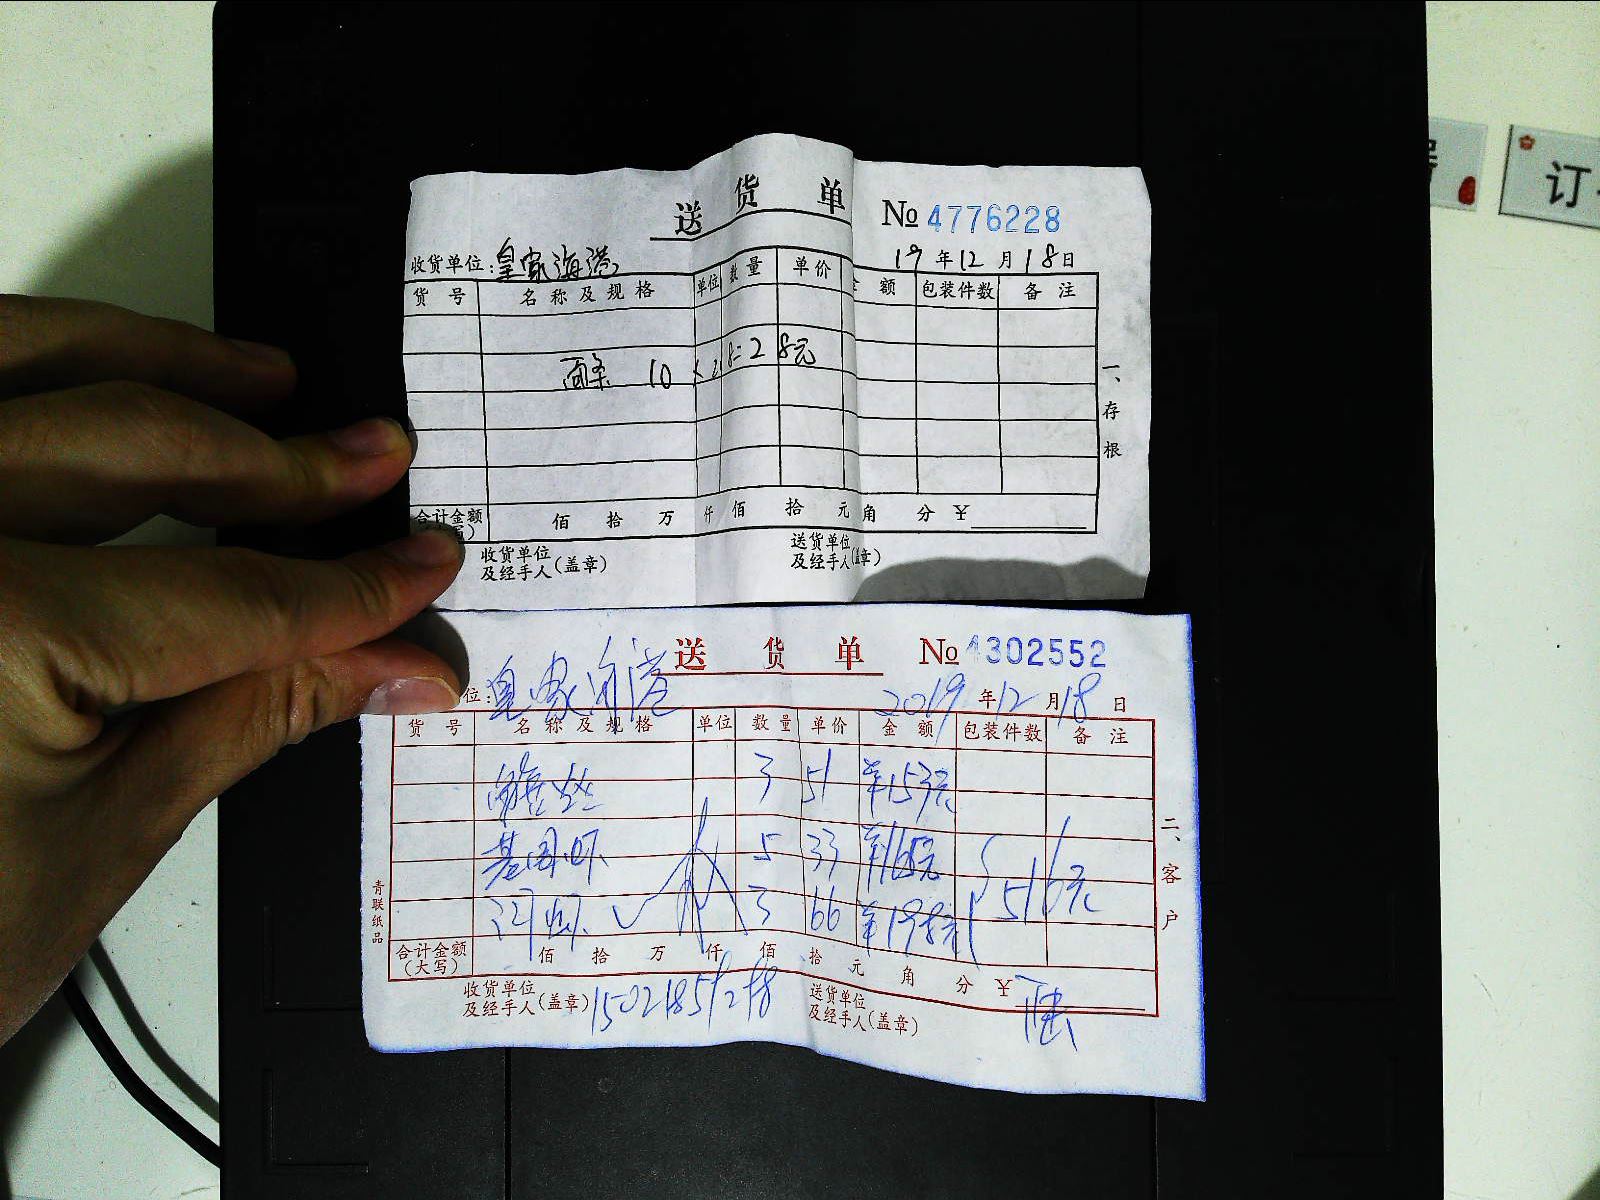 送 货 单 № 4776228
收货单位:皇家海港 19 年 12 月 18 日
货 号 名 称 及 规 格 单位 数 量 单价 金 额 包装件数 备 注
面条 10 × 2.8=28元
一、存根
合计金额 佰 拾 万 仟 佰 拾 元 角 分 ¥
收货单位 送货单位
及经手人(盖章) 及经手人(盖章)
送 货 单 № 4302552
位:皇家海港 2019 年 12 月 18 日
货 号 名 称 及 规 格 单位 数 量 单价 金 额 包装件数 备 注
3 51 ¥153元
基围虾 5 33 ¥165元
河虾 3 66 ¥198元 516元
二、客户
青联纸品
合计金额 佰 拾 万 仟 佰 拾 元 角 分 ¥
(大写)
收货单位 送货单位
及经手人(盖章) 及经手人(盖章)
订